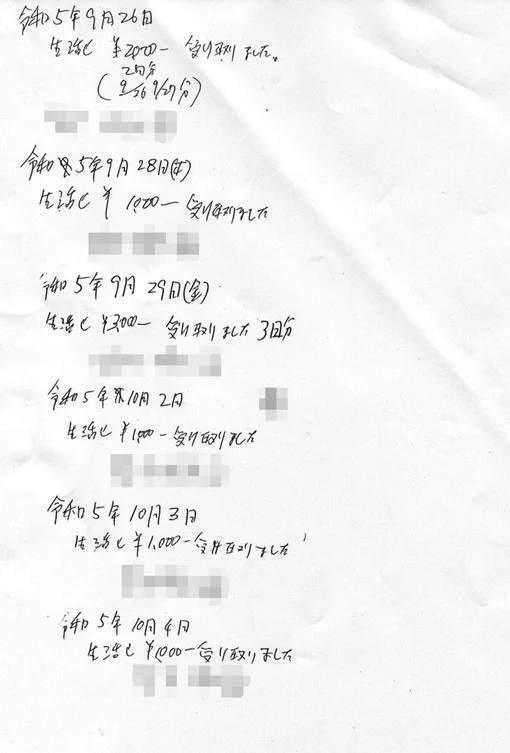 令和5年9月26日
生活ヒ ¥2000- 受け取りました。
2日分
(9/26 9/27分)
令和5年9月28日(木)
生活ヒ ¥ 1,000- 受け取りました
令和5年9月29日(金)
生活ヒ ¥3000- 受け取りました 3日分
令和5年10月2日
生活ヒ ¥1,000- 受け取りました
令和5年10月3日
生活ヒ ¥1,000- 受け取りました
令和5年10月4日
生活ヒ ¥1,000- 受け取りました